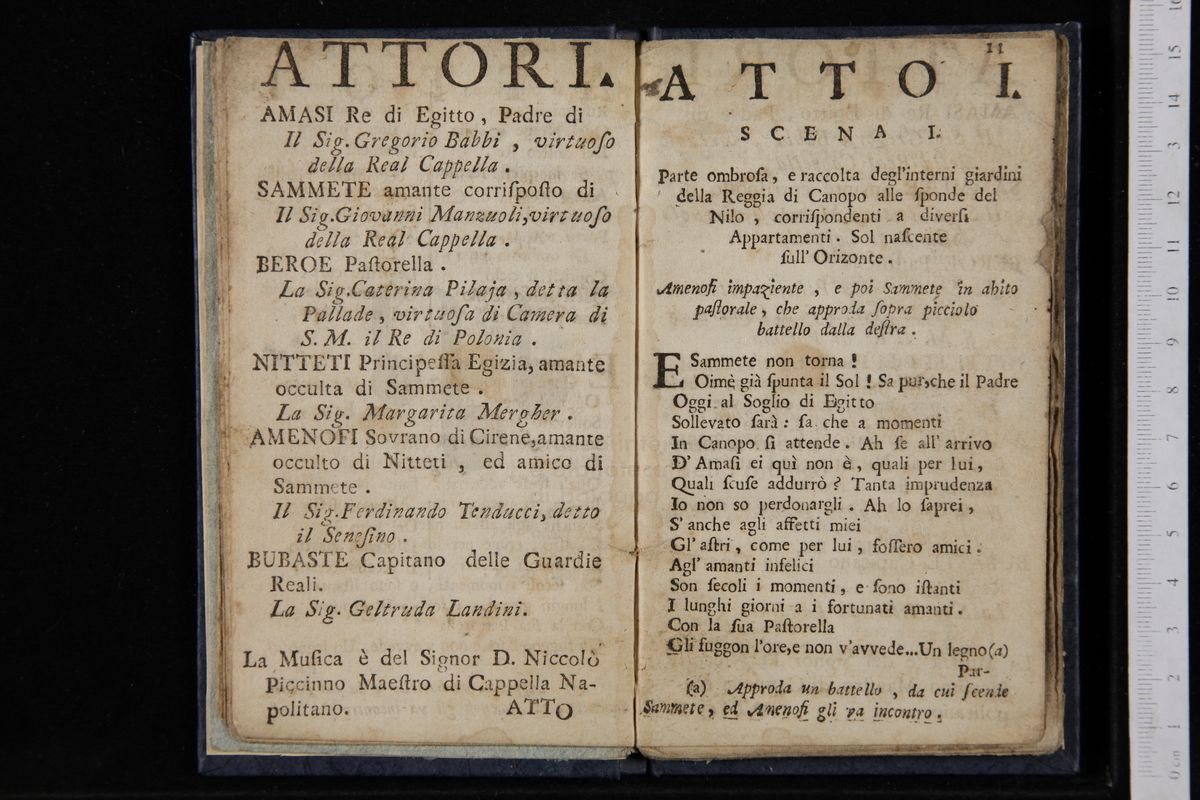 ATTORI.
AMASI Re di Egitto, Padre di
Il Sig. Gregorio Babbi, virtuoſo
della Real Cappella.
SAMMETE amante corriſpoſto di
Il Sig. Giovanni Manzuoli, virtuoſo
della Real Cappella.
BEROE Paſtorella.
La Sig. Caterina Pilaja, detta la
Pallade, virtuoſa di Camera di
S. M. il Re di Polonia.
NITTETI Principeſſa Egizia, amante
occulta di Sammete.
La Sig. Margarita Mergher.
AMENOFI Sovrano di Cirene, amante
occulto di Nitteti, ed amico di
Sammete.
Il Sig. Ferdinando Tenducci, detto
il Seneſino.
BUBASTE Capitano delle Guardie
Reali.
La Sig. Geltruda Landini.
La Muſica è del Signor D. Niccolò
Piccinno Maeſtro di Cappella Na-
politano.
ATTO
11
ATTO I.
SCENA I.
Parte ombroſa, e raccolta degl'interni giardini
della Reggia di Canopo alle ſponde del
Nilo, corriſpondenti a diverſi
Appartamenti. Sol naſcente
ſull' Orizonte.
Amenofi impaziente, e poi Sammete in abito
paſtorale, che approda ſopra picciolo
battello dalla deſtra.
E Sammete non torna!
Oimè già ſpunta il Sol! Sa pur, che il Padre
Oggi al Soglio di Egitto
Sollevato ſarà: ſa che a momenti
In Canopo ſi attende. Ah ſe all' arrivo
D' Amaſi ei quì non è, quali per lui,
Quali ſcuſe addurrò? Tanta imprudenza
Io non so perdonargli. Ah lo ſaprei,
S' anche agli affetti miei
Gl' aſtri, come per lui, foſſero amici.
Agl' amanti infelici
Son ſecoli i momenti, e ſono iſtanti
I lunghi giorni a i fortunati amanti.
Con la ſua Paſtorella
Gli fuggon l'ore, e non v'avvede... Un legno (a)
Par-
(a) Approda un battello, da cui ſcende
Sammete, ed Amenofi gli va incontro.